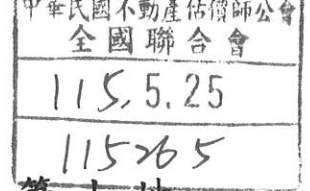 中華民國不動產估價師公會
全國聯合會
115.5.25
115265